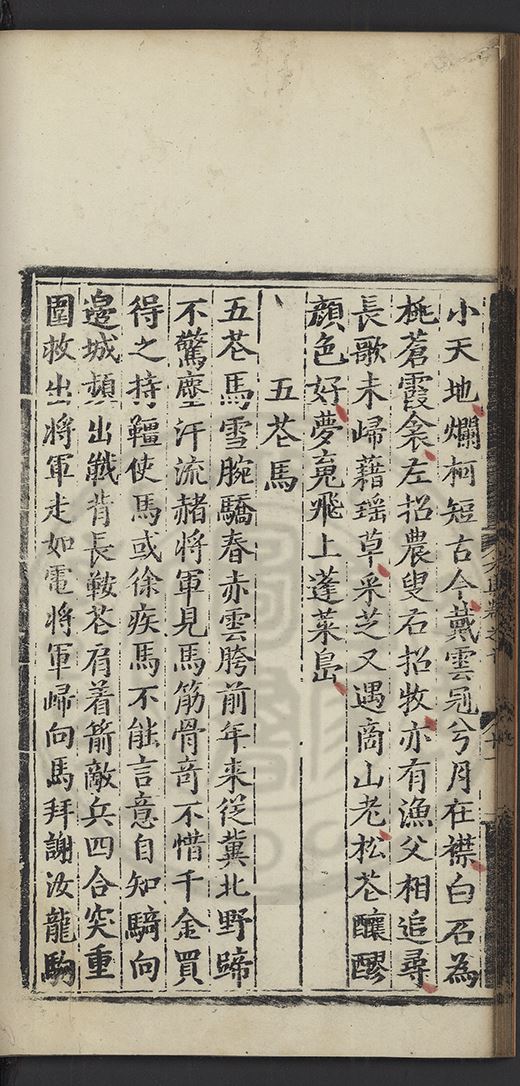 小天地爛柯短古今戴雲冠兮月在襟白石為
枕蒼霞衾左招農叟右招牧亦有漁父相追尋
長歌未歸藉瑤草采芝又遇商山老松花釀醪
顔色好夢䰟飛上蓬萊島
五花馬
五花馬雪腕驕春赤雲胯前年来従冀北野蹄
不驚塵汗流赭將軍見馬筋骨竒不惜千金買
得之持韁使馬或徐疾馬不能言意自知騎向
邊城頻出戰背長鞍花肩着箭敵兵四合突重
圍救出將軍走如電將軍歸向馬拜謝汝龍駒